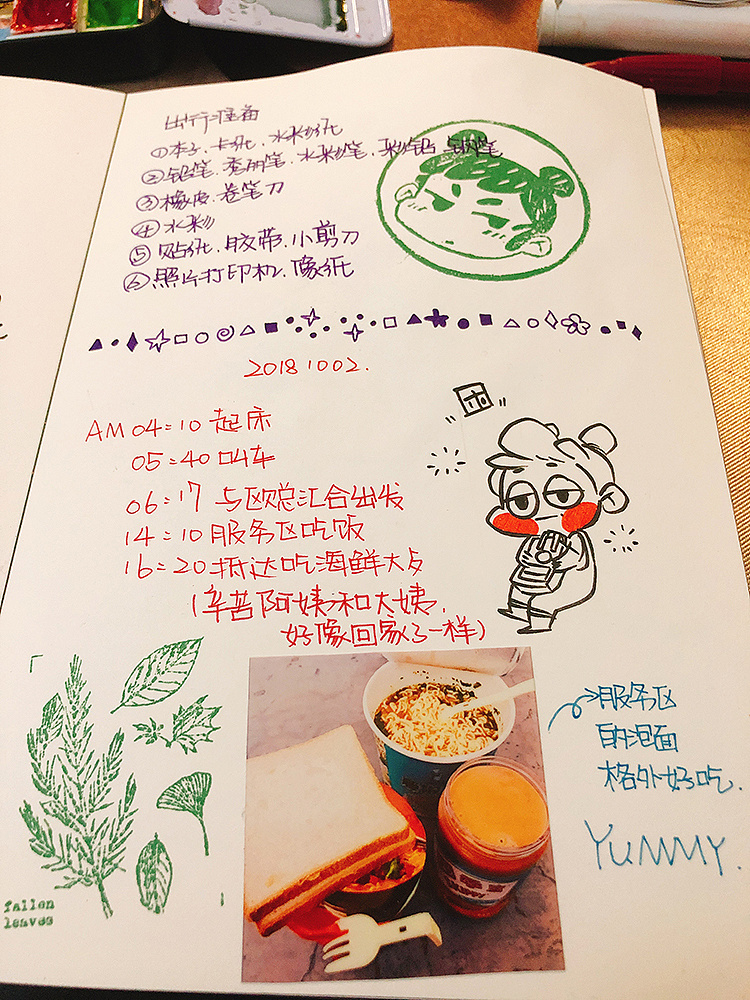 出行准备
①本子.卡纸.水彩纸
②铅笔.秀丽笔.水彩笔.彩铅.钢笔
③橡皮.卷笔刀
④水彩
⑤贴纸.胶带.小剪刀
⑥照片打印机.像纸
20181002.
AM 04:10 起床
05:40 叫车
06:17 与欧总汇合出发
14:10 服务区吃饭
16:20 抵达吃海鲜大
(辛苦阿姨和大姨,
好像回家了一样)
困
服务区
的泡面
格外好吃.
YUMMY.
fallen
leaves